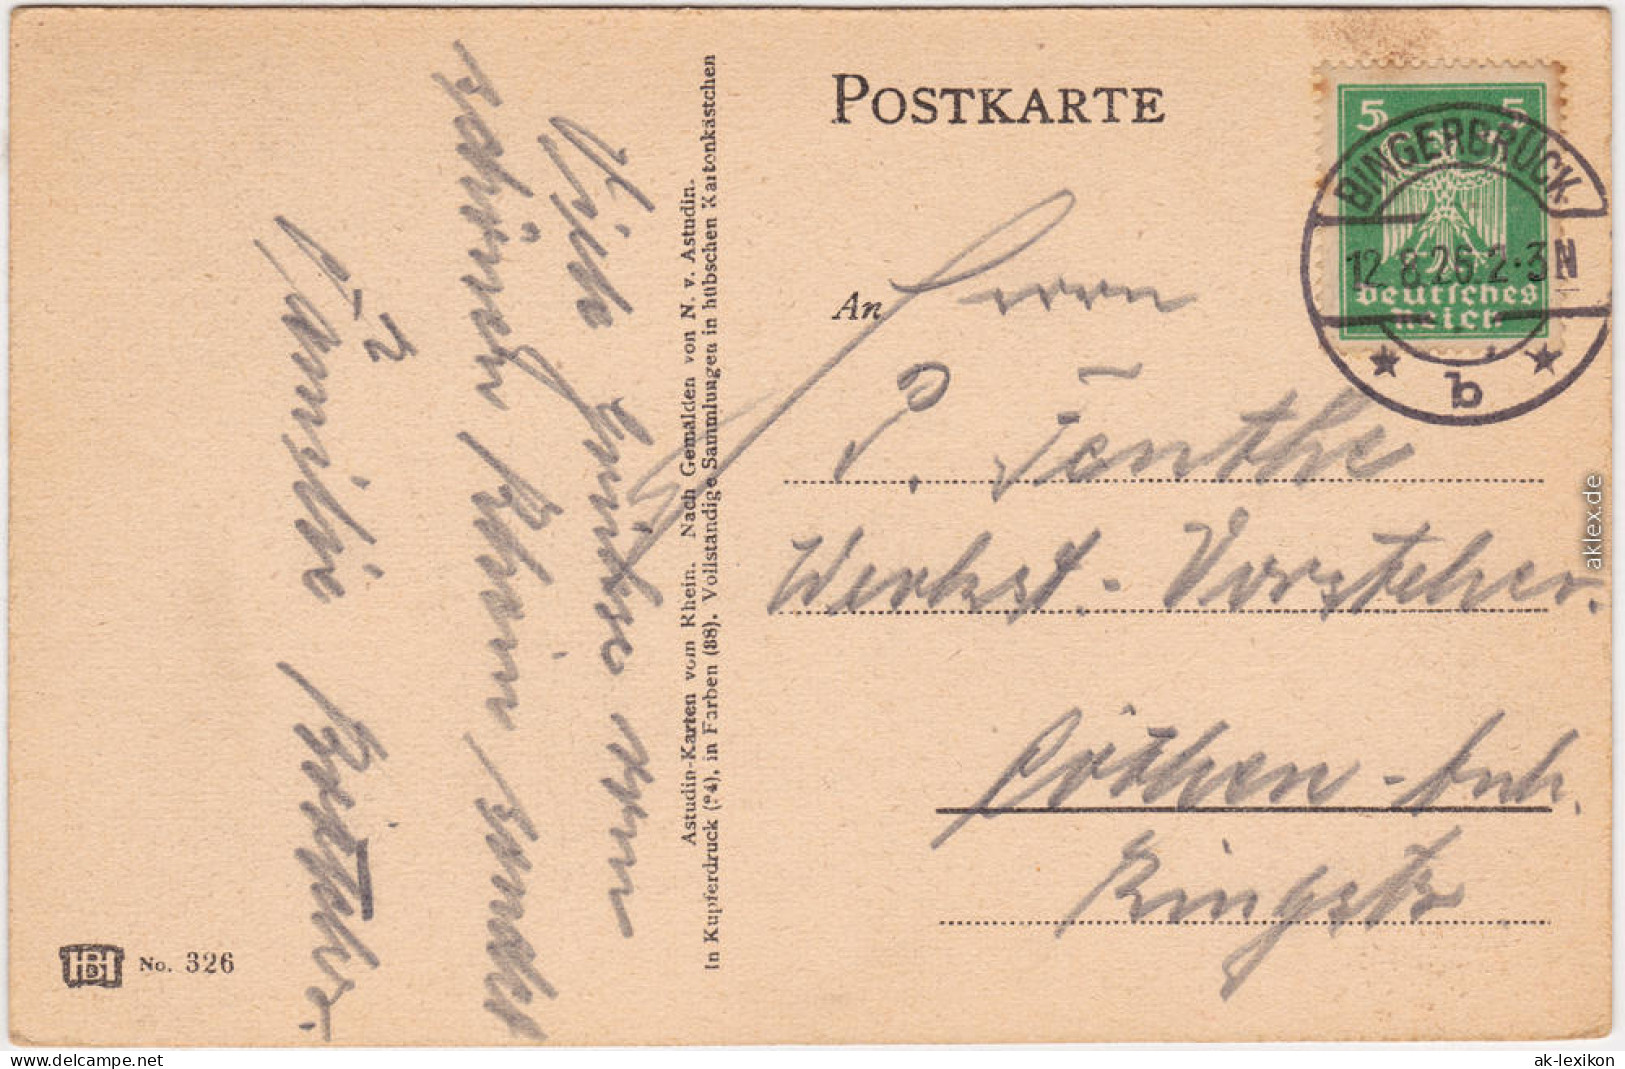 POSTKARTE
5 5
Deutsches
Reich
BINGERBRÜCK
12.8.26.2-3N
b
An Herrn
P. Jenthe
Werkst.-Vorsteher.
Cöthen-Anh.
Ringstr.
Viele Grüße vom
schönen Rhein, sendet
Familie
Astudin-Karten vom Rhein. Nach Gemälden von N. v. Astudin.
In Kupferdruck (94), in Farben (88). Vollständige Sammlungen in hübschen Kartonkästchen
HBH No. 326
aklex.de
www.delcampe.net
ak-lexikon